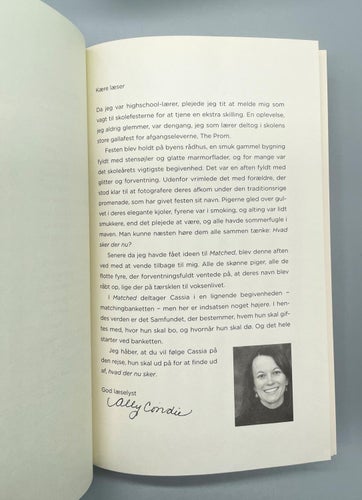 Kære læser
Da jeg var highschool-lærer, plejede jeg tit at melde mig som
vagt til skolefesterne for at tjene en ekstra skilling. En oplevelse,
jeg aldrig glemmer, var dengang, jeg som lærer deltog i skolens
store gallafest for afgangseleverne, The Prom.
Festen blev holdt på byens rådhus, en smuk gammel bygning
fyldt med stensøjler og glatte marmorflader, og for mange var
det skoleårets vigtigste begivenhed. Det var en aften fyldt med
glitter og forventning. Udenfor vrimlede det med forældre, der
stod klar til at fotografere deres afkom under den traditionsrige
promenade, som har givet festen sit navn. Pigerne gled over gul-
vet i deres elegante kjoler, fyrene var i smoking, og alting var lidt
smukkere, end det plejede at være, og alle havde sommerfugle i
maven. Man kunne næsten høre dem alle sammen tænke: Hvad
sker der nu?
Senere da jeg havde fået ideen til Matched, blev denne aften
ved med at vende tilbage til mig. Alle de skønne piger, alle de
flotte fyre, der forventningsfuldt ventede på, at deres navn blev
råbt op, lige der på tærsklen til voksenlivet.
I Matched deltager Cassia i en lignende begivenheden –
matchingbanketten – men her er indsatsen noget højere. I hen-
des verden er det Samfundet, der bestemmer, hvem hun skal gif-
tes med, hvor hun skal bo, og hvornår hun skal dø. Og det hele
starter ved banketten.
Jeg håber, at du vil følge Cassia på
den rejse, hun skal ud på for at finde ud
af, hvad der nu sker.
God læselyst
Ally Condie